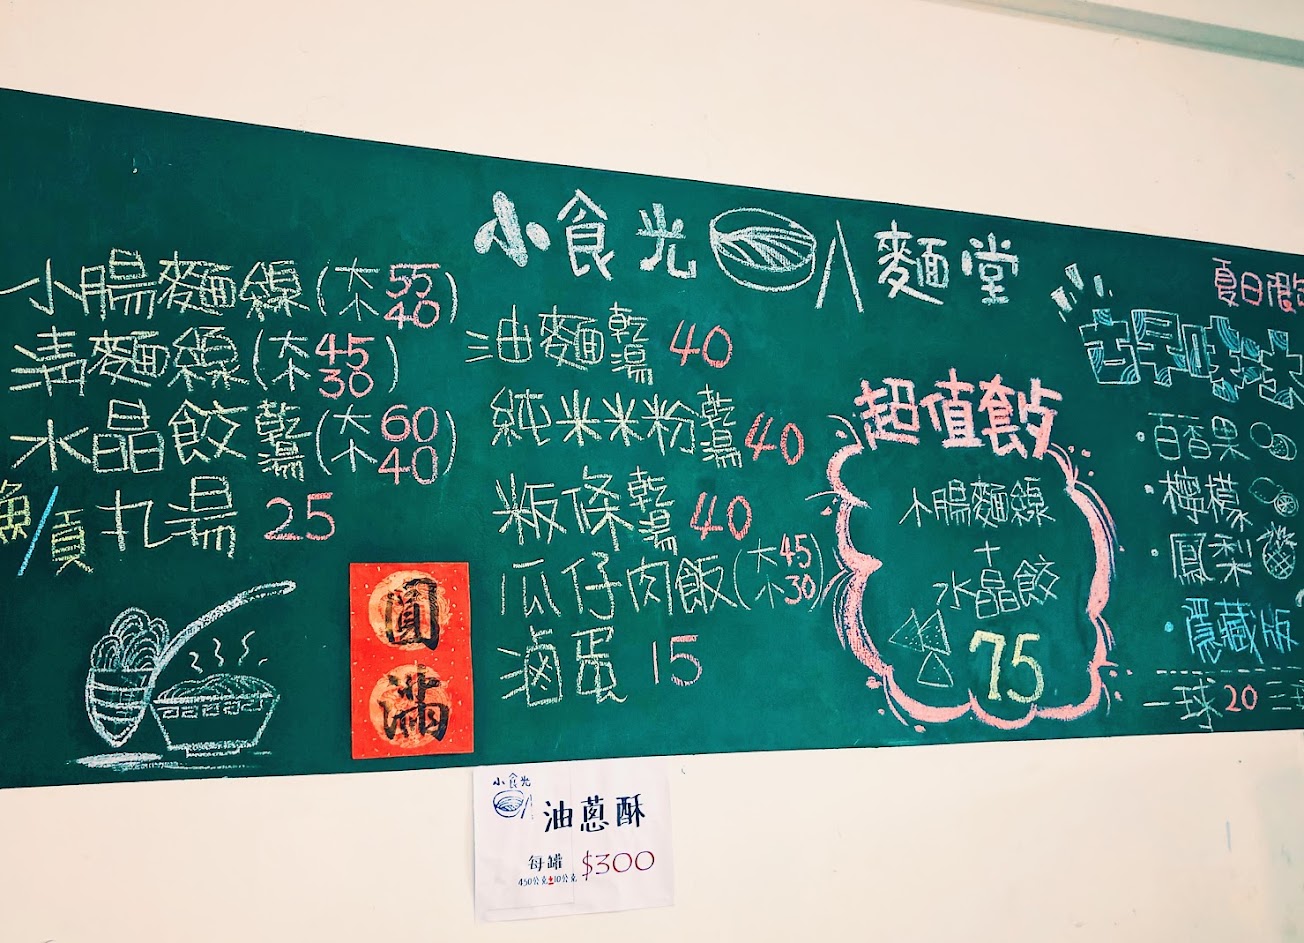 小食光 麵堂
小腸麵線(大55
小40)
清麵線(大45
小30)
水晶餃乾湯(大60
小40)
魚/貢丸湯 25
油麵乾湯 40
純米米粉乾湯 40
粄條乾湯 40
瓜仔肉飯(大45
小30)
滷蛋 15
圓滿
超值套餐
小腸麵線
+
水晶餃
75
夏日限
古早味
百香果
檸檬
鳳梨
隱藏版
一球20 三
小食光
油蔥酥
每罐 $300
450公克±10公克